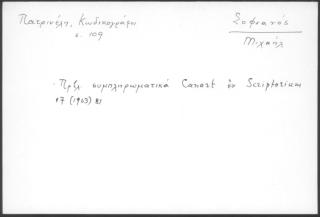 Πατρινέλη, Κωδικογράφοι
σ. 109
Σοφιανός
Μιχαήλ
Πρβλ. συμπληρωματικά Canart ἐν Scriptorium
17 (1963) 81